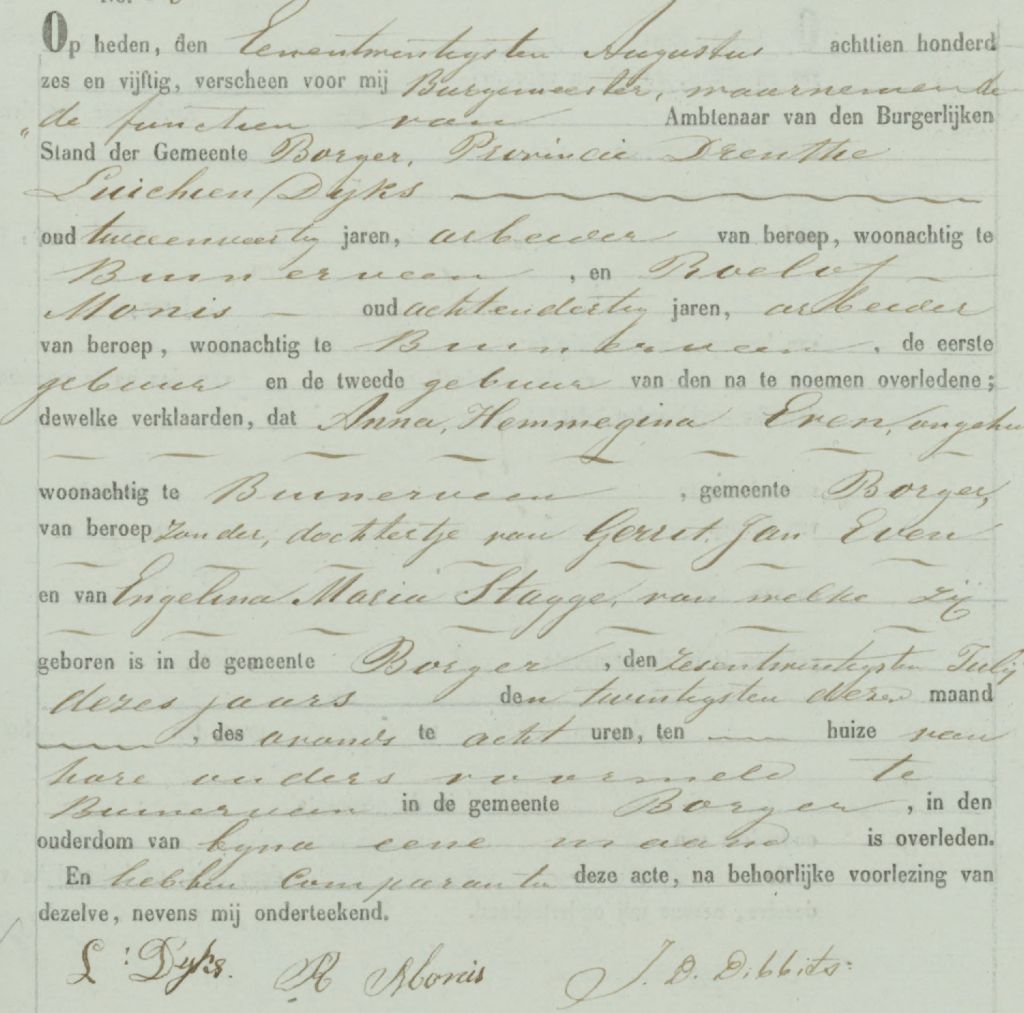 Op heden, den Eenentwintigsten Augustus achttien honderd
zes en vijftig, verscheen voor mij Burgemeester, waarnemende
"de functien van Ambtenaar van den Burgerlijken
Stand der Gemeente Borger, Provincie Drenthe
Luichien Dyks
oud tweeenveertig jaren, arbeider van beroep, woonachtig te
Buinerveen, en Roelof
Monis oud achtendertig jaren, arbeider
van beroep, woonachtig te Buinerveen, de eerste
gebuur en de tweede gebuur van den na te noemen overledene;
dewelke verklaarden, dat Anna, Hemmegina Even, ongehu
woonachtig te Buinerveen, gemeente Borger,
van beroep zonder, dochtertje van Gerrit Jan Even
en van Engelina Maria Stagge, van welke zij
geboren is in de gemeente Borger, den zesentwintigsten Julij
dezes jaars den twintigsten dezer maand
, des avonds te acht uren, ten huize van
hare ouders voormeld te
Buinerveen in de gemeente Borger, in den
ouderdom van byna eene maand is overleden.
En hebben Comparanten deze acte, na behoorlijke voorlezing van
dezelve, nevens mij onderteekend.
L: Dyks. R Monis J. D. Dibbits: